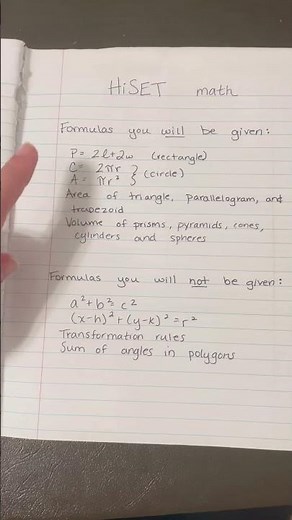 HiSET math
Formulas you will be given:
P = 2l+2w (rectangle)
C = 2πr
A = πr² } (circle)
Area of triangle, parallelogram, and
trapezoid
Volume of prisms, pyramids, cones,
cylinders and spheres
Formulas you will not be given:
a²+b²=c²
(x-h)²+(y-k)²=r²
Transformation rules
Sum of angles in polygons